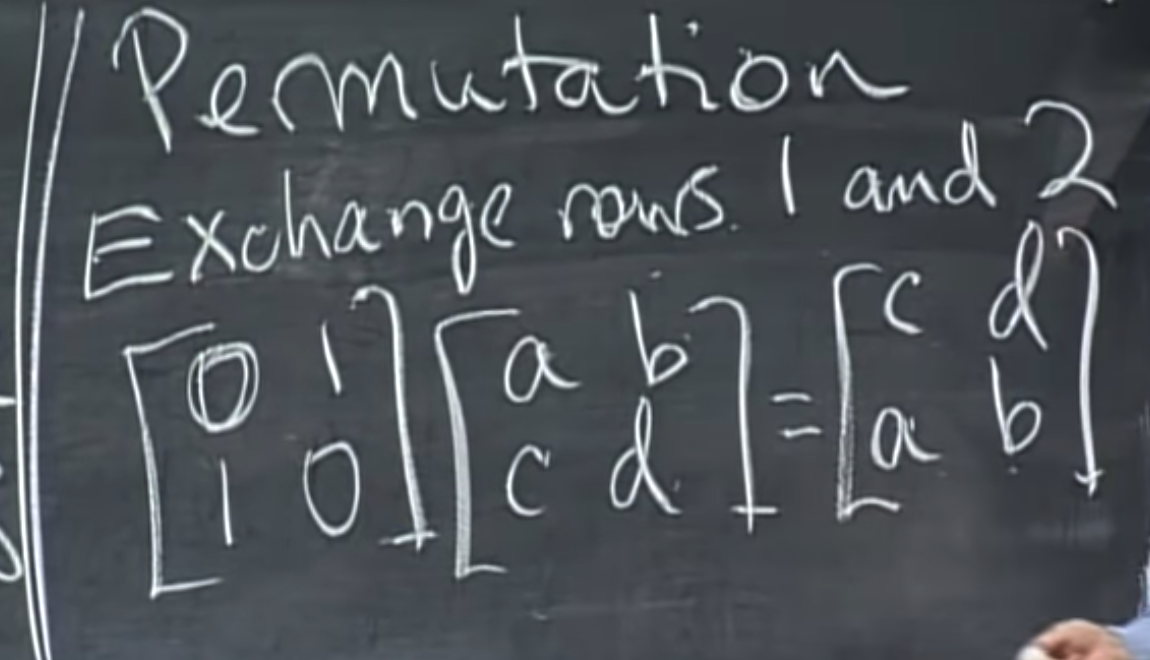 Permutation
Exchange rows 1 and 2
[0 1] [a b] = [c d]
[1 0] [c d]   [a b]